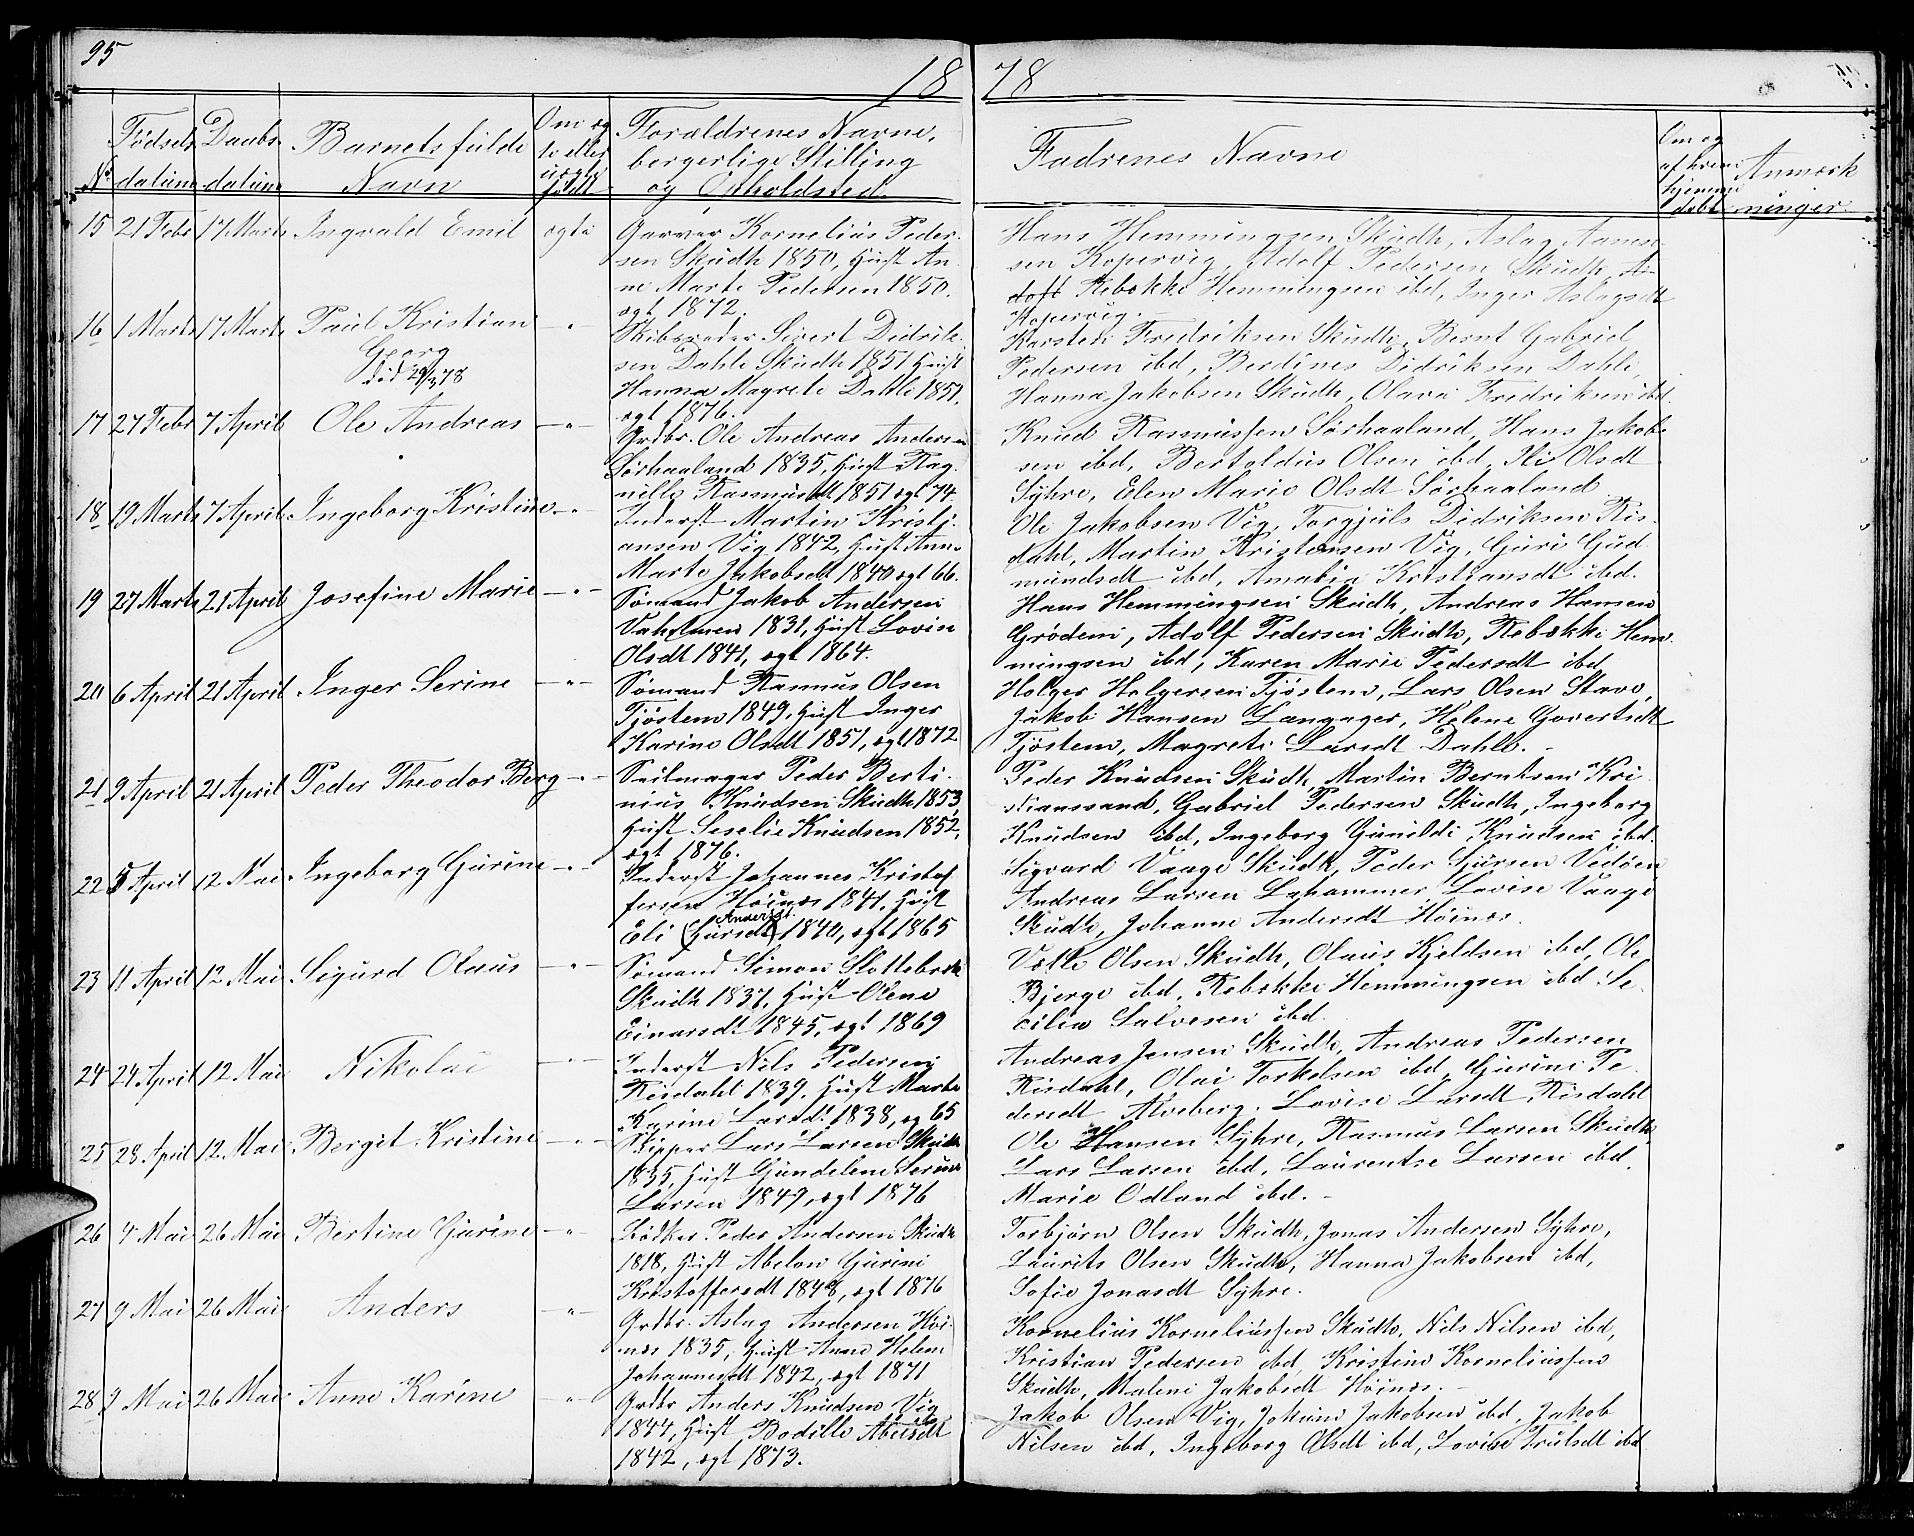 95
18 78
No
Fødsels
datum
Daabs
datum
Barnets fulde
Navn
Om æg
te eller
uægte
født
Forældrenes Navne,
borgerlige Stilling
og Opholdsted.
Fadrenes Navne
Om og
af hvem
hjemme
døbt
Anmærk
ninger.
15 21 Febr 17 Marts Ingvald Emil ægte
Garver Kornelius Peder-
sen Skudh 1850, Hust An-
ne Marte Pedersen 1850.
ægt 1872.
Hans Hemmingsen Skudh, Aslag Aamod-
sen Kopervig, Adolf Pedersen Skudh, A-
dolf Rebekke Hemmingsen ibd, Inger Aslagsdt
Kopervig.
16 1 Marts 17 Marts Paul Kristian
Georg
død 29/3 78
Skibsreder Sivert Didrik-
sen Dahle Skudh 1851 Hust
Hanna Magrete Dahle 1851,
ægt 1876.
Karsten Fredriksen Skudh, Bernt Gabriel
Pedersen ibd, Berdines Didriksen Dahle,
Hanna Jakobsen Skudh, Olava Fredriksen ibd.
17 27 Febr 7 April Ole Andreas
Grdbr. Ole Andreas Andersen
Sørhaaland 1835, Hust Rag-
nille Rasmusdt 1851 ægt 74.
Knud Rasmussen Sørhaaland, Hans Jakob-
sen ibd, Bertoldus Olsen ibd, Eli Olsdt
Syhre, Elen Marie Olsdt Sørhaaland
18 19 Marts 7 April Ingeborg Kristine
Inderst Martin Kristi-
ansen Vig 1842, Hust Anne
Marte Jakobsdt 1840 ægt 66.
Ole Jakobsen Vig, Torgjuls Didriksen Ris-
dahl, Martin Kristensen Vig, Guri Gud-
mundsdt ibd, Amalia Kristiansdt ibd.
19 27 Marts 21 April Josefine Marie
Sømand Jakob Andersen
Vaholmen 1831, Hust Lovin
Olsdt 1841, ægt 1864.
Hans Hemmingsen Skudh, Andreas Hansen
Grødem, Adolf Pedersen Skudh, Rebekke Hem-
mingsen ibd, Karen Marie Pedersdt ibd
20 6 April 21 April Inger Serine
Sømand Rasmus Olsen
Tjøstem 1849, Hust Inger
Karine Olsdt 1851, ægt 1872
Holger Holgersen Tjøstem, Lars Olsen Stave,
Jakob Hansen Langager, Helene Govertsdt
Tjøstem, Magrete Larsdt Dahle.
21 9 April 21 April Peder Theodor Berg
Seilmager Peder Berti-
nius Knudsen Skudh 1853,
Hust Seselie Knudsen 1852,
ægt 1876.
Peder Knudsen Skudh, Martin Berntsen Kri-
stianssand, Gabriel Pedersen Skudh, Ingeborg
Knudsen ibd, Ingeborg Gunilde Knudsen ibd.
22 5 April 12 Mai Ingeborg Gurine
Inderst Johannes Kristof-
fersen Høines 1841, Hust
Andersdt.
Eli (Gursdt) 1840, ægt 1865
Sigvard Vaage Skudh, Peder Sjursen Vedøen
Andreas Larsen Lahammer Lovise Vaage
Skudh, Johanne Andersdt Høines.
23 11 April 12 Mai Sigurd Olaus
Sømand Simon Slottebræk
Skudh 1837, Hust Olene
Einarsdt 1845, ægt 1869
Vølle Olsen Skudh, Olaus Kjeldsen ibd, Ole
Bjerge ibd, Rebekke Hemmingsen ibd Se-
cilia Salvesen ibd.
24 24 April 12 Mai Nikolai
Inderst Nils Pedersen
Risdahl 1839, Hust Marte
Karine Larsdt 1838, æg 65
Andreas Jensen Skudh, Andreas Pedersen
Risdahl, Olai Torkelsen ibd, Gurine Pe-
dersdt Alveberg. Lovise Larsdt Risdahl
25 28 April 12 Mai Bergit Kristine
Skipper Lars Larsen Skudh
1835, Hust Gundelene Serine
Larsen 1849, ægt 1876
Ole Hansen Syhre, Rasmus Larsen Skudh
Lars Larsen ibd, Laurentse Larsen ibd,
Marie Odland ibd.
26 4 Mai 26 Mai Bertine Gurine
Bødker Peder Andersen Skudh
1818, Hust Abelon Gurine
Kristoffersdt 1848, ægt 1876
Torbjørn Olsen Skudh, Jonas Andersen Syhre,
Laurits Olsen Skudh, Hanna Jakobsen ibd,
Sofie Jonasdt Syhre.
27 9 Mai 26 Mai Anders
Grdbr. Aslag Andersen Høi-
nes 1835, Hust Anne Helene
Johannesdt 1842, ægt 1871
Kornelius Korneliussen Skudh, Nils Nilsen ibd,
Kristian Pedersen ibd, Kristine Korneliussen
Skudh, Malene Jakobsdt Høines.
28 9 Mai 26 Mai Anne Karine
Grdbr Anders Knudsen Vig
1844, Hust Bodille Abelsdt
1842, ægt 1873.
Jakob Olsen Vig, Jokum Jakobsen ibd, Jakob
Nilsen ibd, Ingeborg Olsdt ibd, Lovise Trulsdt ibd